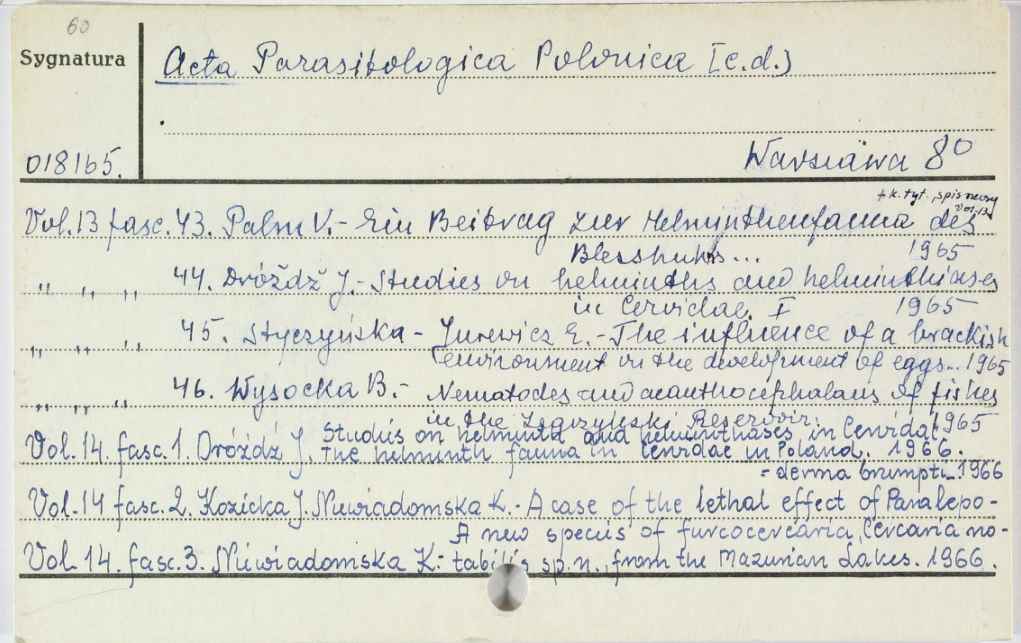 60
Sygnatura
Acta Parasitologica Polonica [c.d.)
018165.
Warszawa 80
+ k. tyt., spis nowy vol. 13
Vol. 13 fasc. 43. Palm V. - Ein Beitrag zur Helmynthenfauna des
Blesshuhs... 1965
" " " 44. Dróżdż J. - Studies on helminths and helminthiases
in Cervidae. I 1965
" " " 45. Styczyńska - Jurewicz E. - The influence of a brackish
environment on the development of eggs... 1965
" " " 46. Wysocka B. - Nematodes and acanthocephalans of fishes
in the Zegrzyński Reservoir. 1965
Studies on helminth and helminthases in Cervidae
Vol. 14. fasc. 1. Dróżdż J. The helminth fauna in Cenridae in Poland. 1966.
= derma brumpti... 1966
Vol. 14 fasc. 2. Kozicka J. Niewiadomska K. - A case of the lethal effect of Paralepo-
A new species of furcocercaria, Cercaria no-
Vol. 14. fasc. 3. Niewiadomska K: tabilis sp. n., from the Mazurian Lakes. 1966.